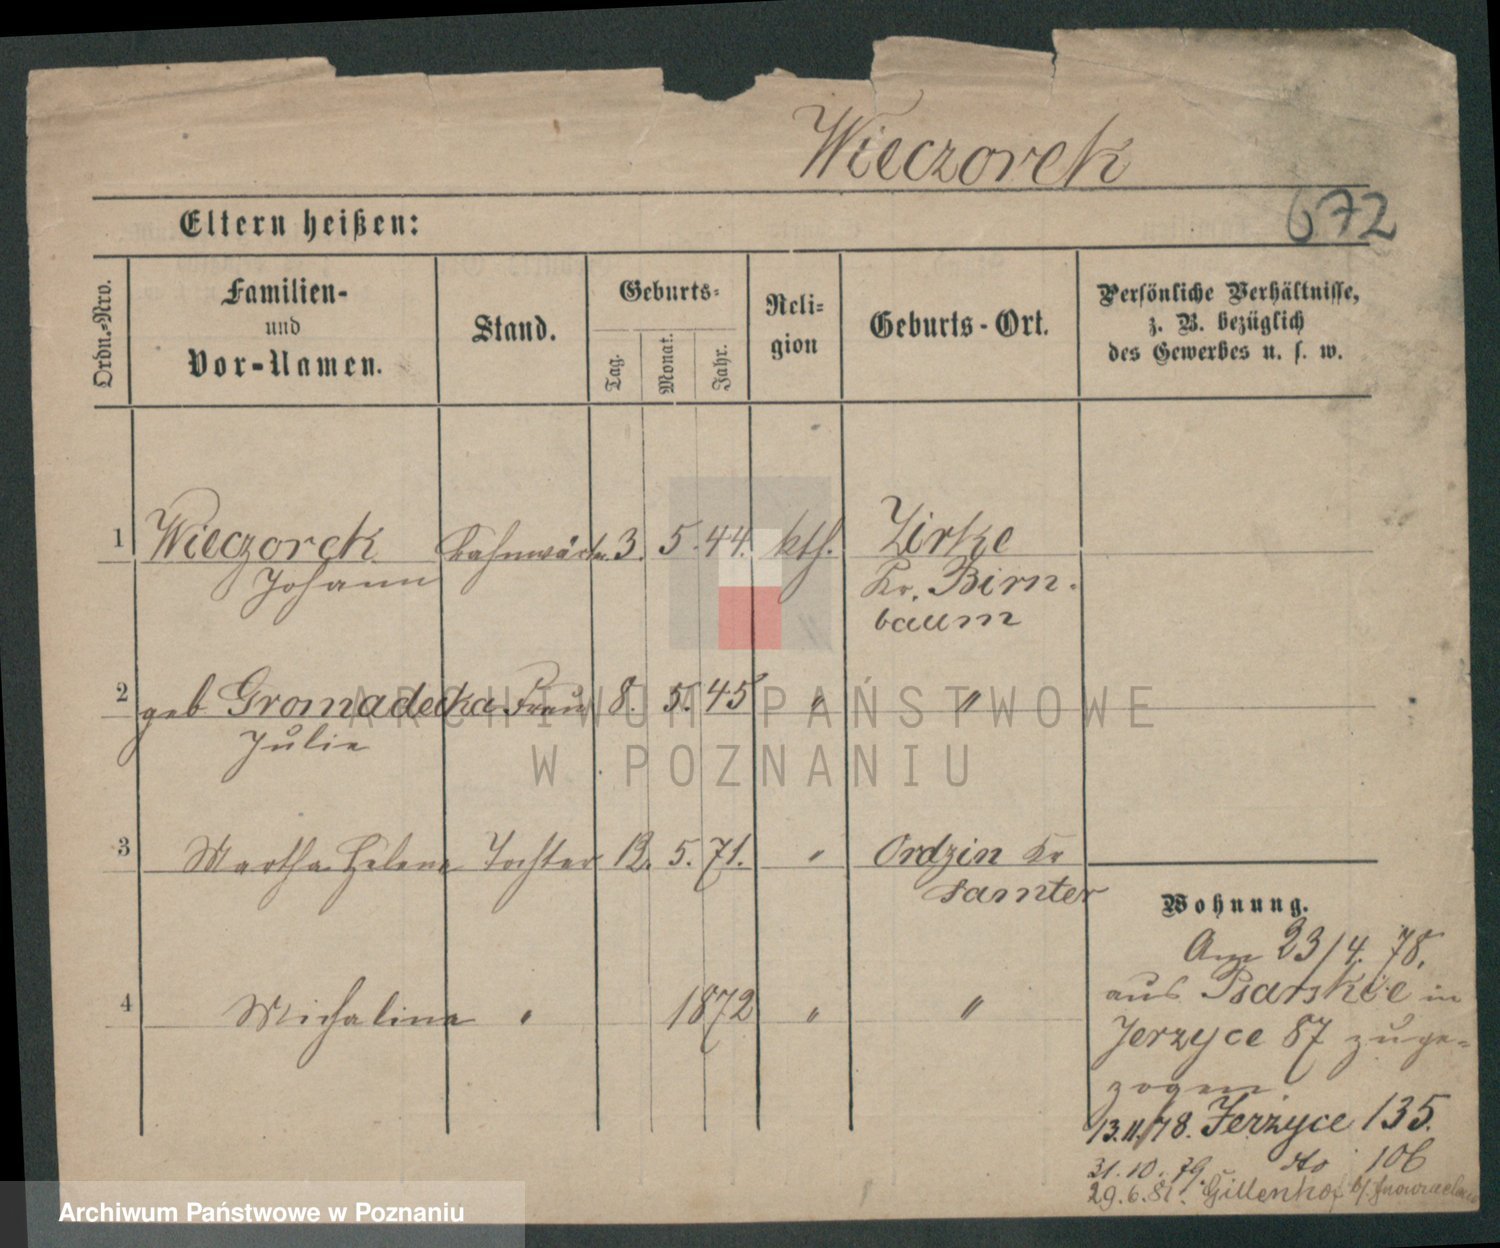 Wieczorek
672
Eltern heißen:
Ordn.-Nro.
Familien-
und
Vor-Namen.
Stand.
Geburts-
Tag.
Monat.
Jahr.
Reli-
gion
Geburts-Ort.
Persönliche Verhältnisse,
z. B. bezüglich
des Gewerbes u. s. w.
1 Wieczorek Bahnwärter 3. 5. 44. kth. Zirke
Johann Kr. Birn-
baum
2 geb Gromadecka Frau 8. 5. 45 " "
Julie
3 Martha Helene Tochter 12. 5. 71. " Ordzin Kr
Samter
4 Michalina " 1872 " "
Wohnung.
Am 23/4. 78.
aus Psarskie in
Jerzyce 87 zuge-
zogen
13.11/78. Jerzyce 135.
31.10.79. do 106
29.6.81. Güldenhof b/ Inowraclaw
ARCHIWUM PAŃSTWOWE
W POZNANIU
Archiwum Państwowe w Poznaniu